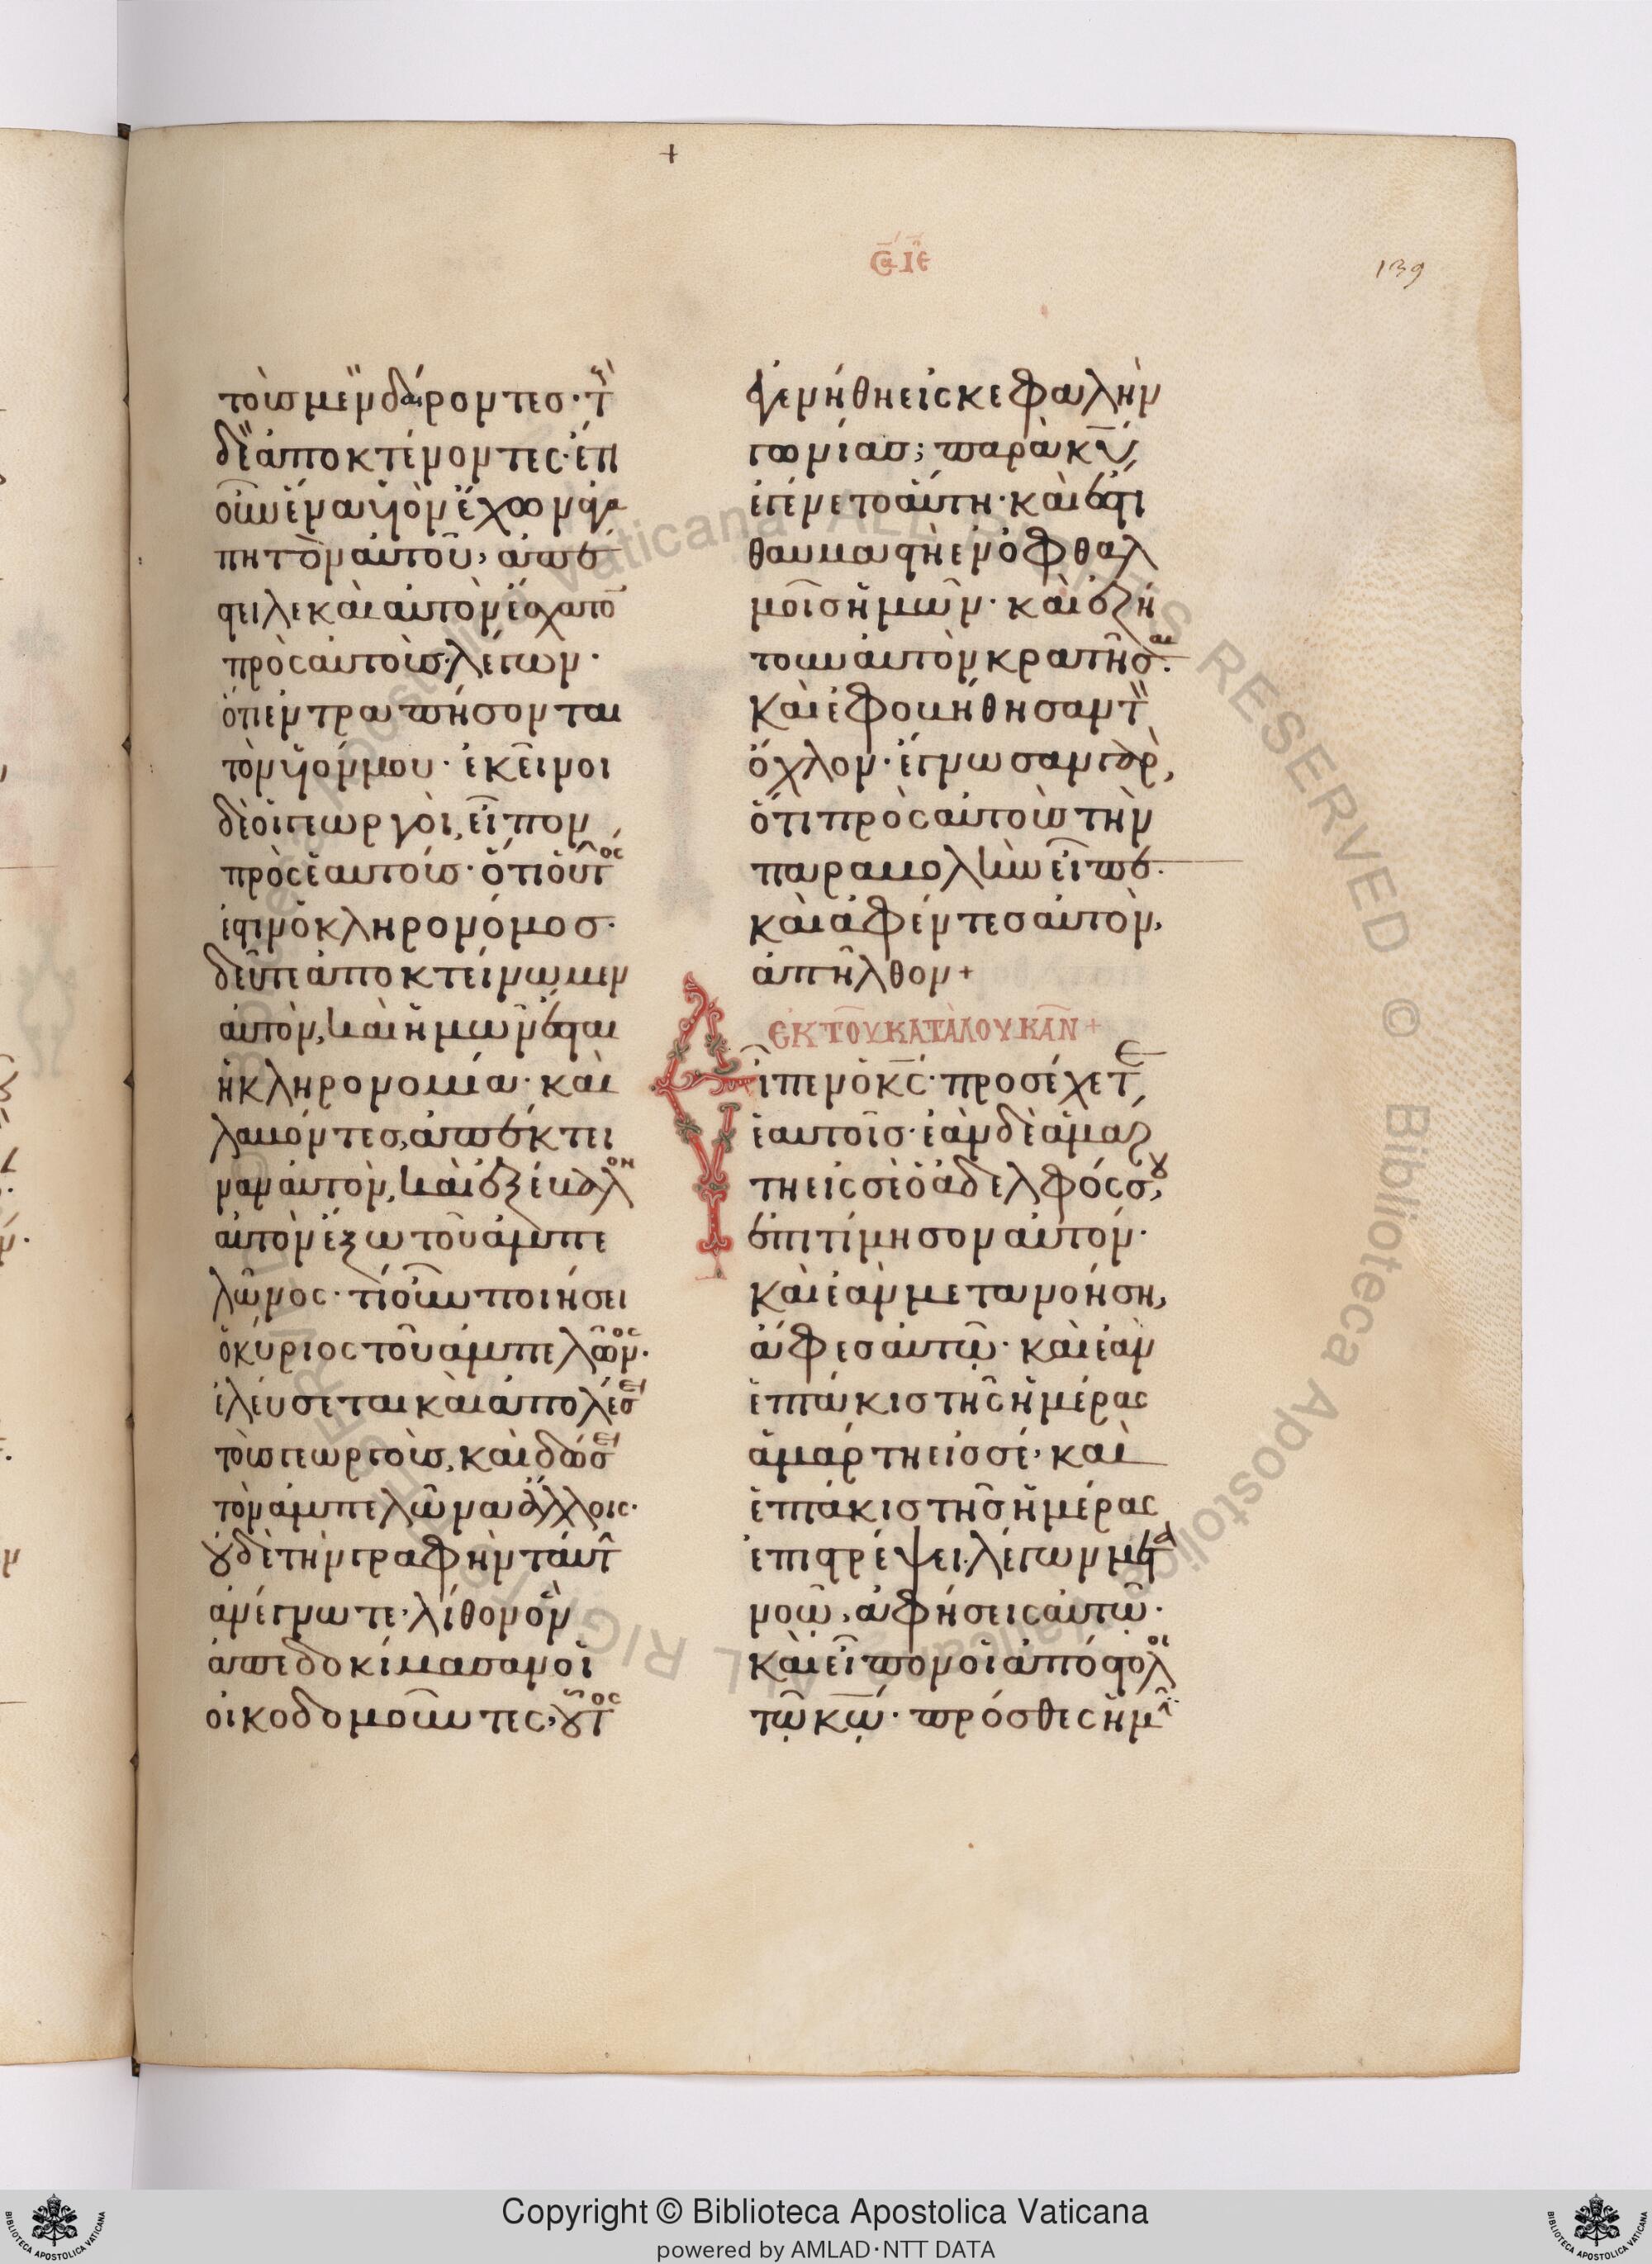 +
Σα ΙΕ
139
τοὺς μὲν δαίροντες· τ
δὲ ἀποκτένοντες· ἔτι
οὖν ἕνα υἱὸν ἔχων ἀγα
πητὸν αὐτοῦ, ἀπέ
στειλε καὶ αὐτὸν ἔσχατο
πρὸς αὐτοὺς λέγων·
ὅτι ἐντραπήσονται
τὸν υἱόν μου· ἐκεῖνοι
δὲ οἱ γεωργοὶ, εἶπον
πρὸς ἑαυτούς· ὅτι οὗτος
ἐστιν ὁ κληρονόμος·
δεῦτε ἀποκτείνωμεν
αὐτὸν, καὶ ἡμῶν ἔσται
ἡ κληρονομία· καὶ
λαβόντες, ἀπέκτει
ναν αὐτὸν, καὶ ἐξέβαλον
αὐτὸν ἔξω τοῦ ἀμπε
λῶνος· τί οὖν ποιήσει
ὁ κύριος τοῦ ἀμπελῶνος·
ἐλεύσεται καὶ ἀπολέσει
τοὺς γεωργοὺς, καὶ δώσει
τὸν ἀμπελῶνα ἄλλοις·
οὐδὲ τὴν γραφὴν ταύτ
ἀνέγνωτε· λίθον ὃν
ἀπεδοκίμασαν οἱ
οἰκοδομοῦντες, οὗτος
ἐγενήθη εἰς κεφαλὴν
γωνίας; παρὰ κυ,
ἐγένετο αὕτη· καὶ ἔστι
θαυμαστὴ ἐν ὀφθαλ
μοῖς ἡμῶν· καὶ ἐζή
τουν αὐτὸν κρατῆσαι·
καὶ ἐφοβήθησαν τ
ὄχλον· ἔγνωσαν γὰρ,
ὅτι πρὸς αὐτοὺς τὴν
παραβολὴν εἶπε·
καὶ ἀφέντες αὐτὸν,
ἀπῆλθον+
ΕΚ ΤΟΥ ΚΑΤΑ ΛΟΥΚΑΝ+
Εἶπεν ὁ κς· προσέχετε
ἑαυτοῖς· ἐὰν δὲ ἁμάρ
τη εἰς σὲ ὁ ἀδελφός σου,
ἐπιτίμησον αὐτόν·
καὶ ἐὰν μετανοήση,
ἄφες αὐτῷ· καὶ ἐὰν
ἑπτάκις τῆς ἡμέρας
ἁμάρτη εἰς σέ, καὶ
ἑπτάκις τῆς ἡμέρας
ἐπιστρέψει λέγων μετα
νοῶ, ἀφήσεις αὐτῷ·
καὶ εἶπον οἱ ἀπόστολοι
τῷ κῳ· πρόσθες ἡμῖ
Copyright © Biblioteca Apostolica Vaticana
powered by AMLAD·NTT DATA